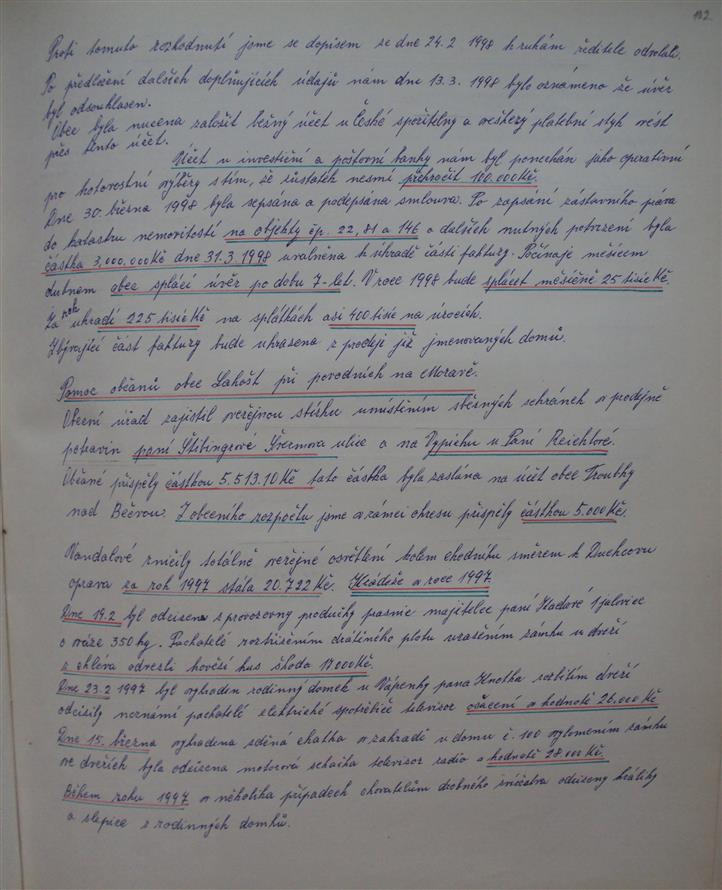 132.
Proti tomuto rozhodnutí jsme se dopisem ze dne 24.2 1998 k rukám ředitele odvolali.
Po předložení dalších doplňujících údajů nám dne 13.3. 1998 bylo oznámeno že úvěr
byl odsouhlasen.
Obec byla nucena založit bežný účet u České spořitelny a veškerý platební styk vést
přes tento účet.
Účet u investiční a poštovní banky nám byl ponechán jako operativní
pro hotovostní výběry s tím, že zůstatek nesmí překročit 100.000Kč.
Dne 30. března 1998 byla sepsána a podepsána smlouva. Po zapsání zástavního práva
do katastru nemovitostí na objekty čp. 22, 81 a 146 a dalších nutných potvrzení byla
částka 3,000.000Kč dne 31.3.1998 uvolněna k úhradě části faktury. Počínaje měsícem
dubnem obec splácí úvěr po dobu 7-let. V roce 1998 bude splácet měsíčně 25 tisíc Kč.
Za rok uhradí 225 tisíc Kč na splátkách asi 400 tisíc na úrocích.
Zbývající část faktury bude uhrazena z prodeji již jmenovaných domů.
Pomoc občanů obce Lahošt při povodních na Moravě.
Obecní úřad zajistil veřejnou sbírku umístěním sběrných schránek v prodejně
potravin paní Stibingrové Švermova ulice a na Vypichu u Paní Reichlové.
Občané přispěly částkou 5.513.10Kč tato částka byla zaslána na účet obce Troubky
nad Bečvou. Z obecního rozpočtu jsme v rámci okresu přispěly částkou 5.000Kč.
Vandalové zničily totálně veřejné osvětlení kolem chodníku směrem k Duchcovu
oprava za rok 1997 stála 20.722 Kč. Krádeže v roce 1997.
Dne 19.2. byl odcizena z provozovny produkty prasnic majitelce paní 1 jalovice
o váze 350 kg. Pachatelé rozstřižením drátěného plotu uražením zámku u dveří
z chléva odvezli hovězí kus škoda 17000Kč.
Dne 23.2 1997 byl vykraden rodinný domek u Vápenky pana Knotka rozbitím dveří
odcizily neznámí pachatelé elektrické spotřebiče televisor ošacení v hodnotě 26.000 Kč
Dne 15. března vykradena zděná chatka v zahradě u domu č. 100 vylomením zámku
ve dveřích byla odcizena motorová sekačka televisor radio v hodnotě 28.000 Kč.
Během roku 1997 v několika případech chovatelům drobného zvířectva odcizeny králíky
a slepice z rodinných domků.